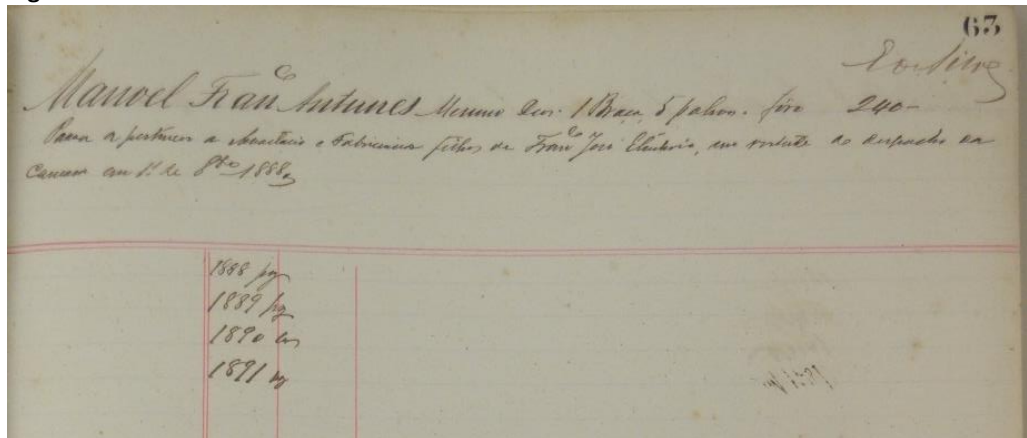 63
E. da Silva
Manoel Franco Antunes 1 Braça 5 palmos. fôro 240-
Passa a pertencer a Anacleto e Fabriciana filhos de Franco José Eleuterio, em virtude do despacho da
Camara em 1º de 8bro 1888,
1888 pg
1889 pg
1890
1891 pg